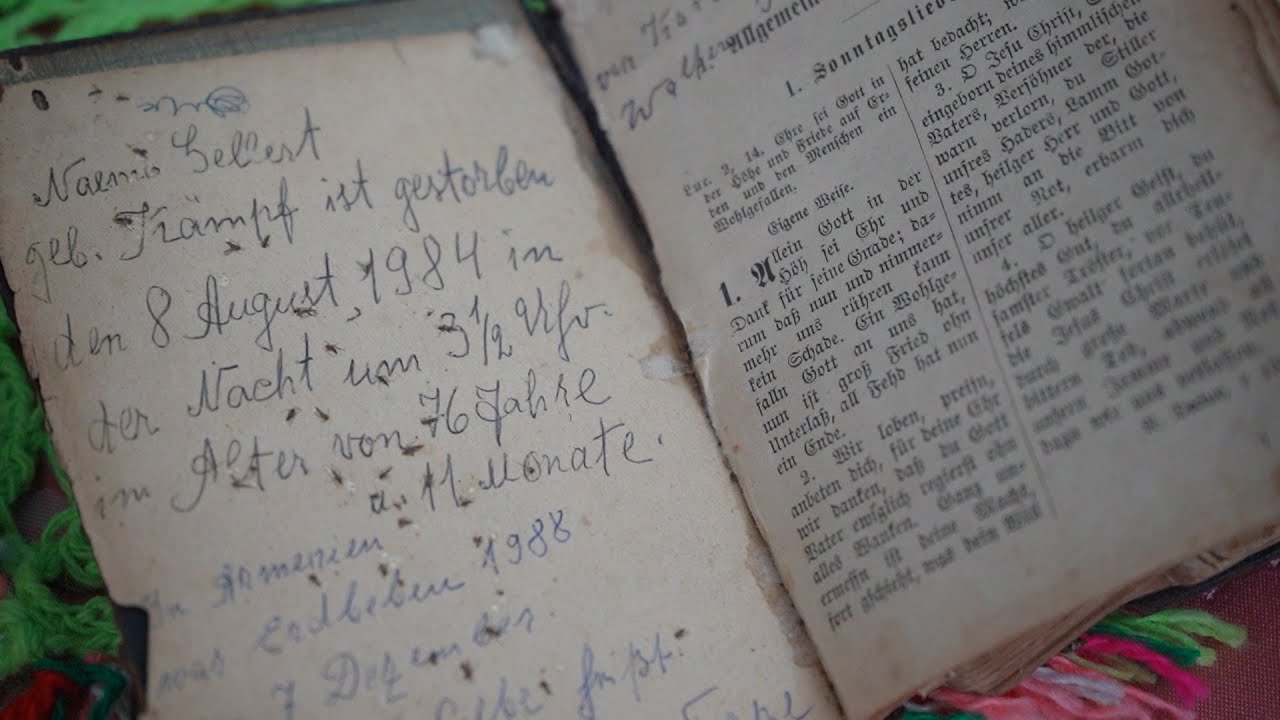 Naemi Gellert
geb. Krämpf ist gestorben
den 8 August, 1984 in
der Nacht um 3 1/2 Uhr.
im Alter von 76 Jahre
u. 11 Monate.
In Armenien
war Erdbeben 1988
7 Dezember.
von
Allgemein
1. Sonntagslieder
Luc. 2, 14. Ehre sei Gott in
der Höhe und Friede auf Er-
den und den Menschen ein
Wohlgefallen.
Eigene Weise.
1. Allein Gott in der
Höh sei Ehr und
Dank für seine Gnade; da-
rum daß nun und nimmer-
mehr uns rühren kann
kein Schade. Ein Wohlge-
falln Gott an uns hat,
nun ist groß Fried ohn
Unterlaß, all Fehd hat nun
ein Ende.
2. Wir loben, preisn,
anbeten dich, für deine Ehr
wir danken, daß du Gott
Vater ewiglich regierst ohn
alles Wanken. Ganz un-
ermeßn ist deine Macht,
fort gschieht, was dein Will
hat bedacht;
feinen Herren.
3. O Jesu Christ,
eingeborn deines himmlischen
Vaters, Versöhner der, die
warn verlorn, du Stiller
unsres Haders, Lamm Got-
tes, heilger Herr und Gott,
nimm an die Bitt von
unsrer Not, erbarm dich
unser aller.
4. O heilger Geist, du
höchstes Gut, du allerheil-
samster Tröster, vor Teu-
fels Gwalt fortan behüt,
die Jesus Christ erlöset
durch große Marter und
bittern Tod, abwend all
unsern Jammer und Not
dazu wir uns verlassen.